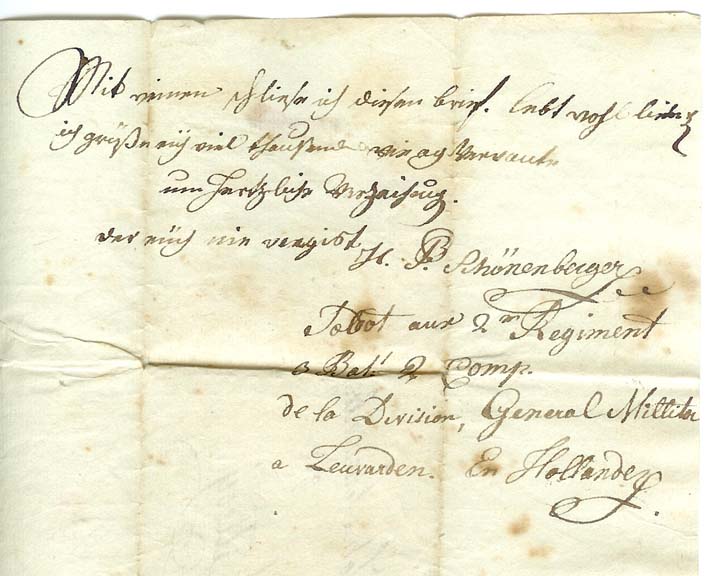 Mit disem schliese ich diesen brief. lebt wohl liebe
ich grüße eüch viel thausend
um hertzliche Verzeihung.
der eüch nie vergist
H. B. Schönenberger
Solot aux 2m Regiment
a Bat. 2 Comp.
de la Division, General Millitär
a Leuvarden. En Hollande